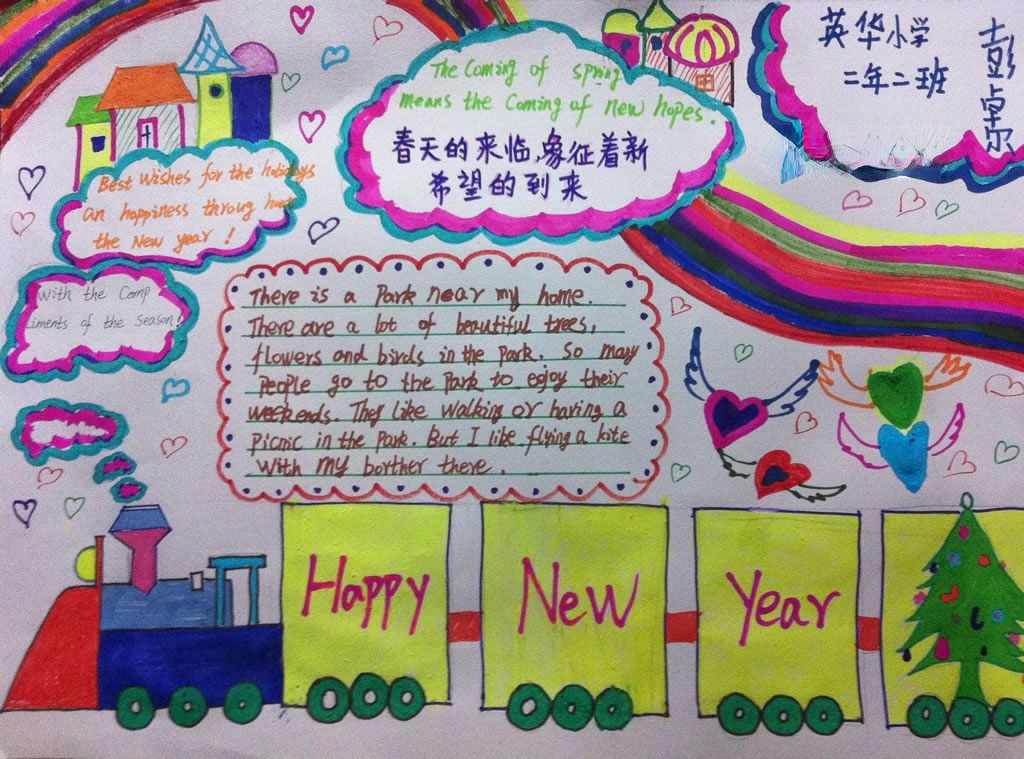 英华小学
二年二班
彭卓尔
The Coming of spring
means the Coming of new hopes.
春天的来临,象征着新
希望的到来
Best Wishes for the holidays
an happiness throug
the New year !
With the Comp
liments of the Season!
There is a Park near my home.
There are a lot of beautiful trees,
flowers and birds in the park. So many
People go to the Park to egjoy their
weekends. They like walking or having a
Picnic in the Park. But I like flying a kite
with my borther there.
Happy New Year